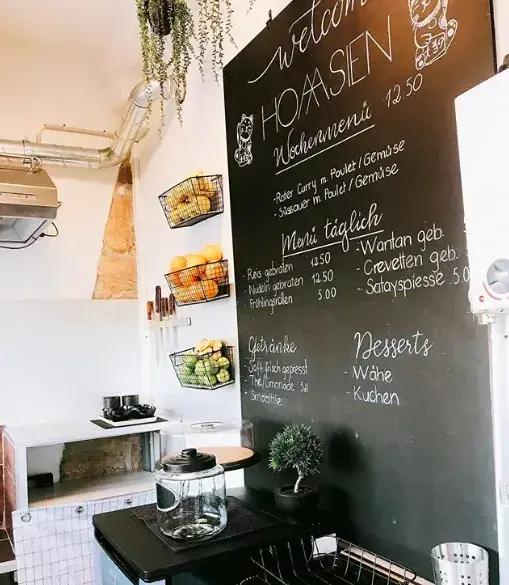 welcom
HOAASIEN
Wochenmenü 12 50
- Roter Curry m. Poulet / Gemüse
- Süssauer m. Poulet / Gemüse
Menü täglich
- Reis gebraten 12 50
- Nudeln gebraten 12 50
- Frühlingsrollen 5 00
- Wantan geb.
- Crevetten geb.
- Satayspiesse 5.0
Getränke
- Saft frisch gepresst
- Thé / Limonade 3dl
- Smoothie
Desserts
- Wähe
- Kuchen